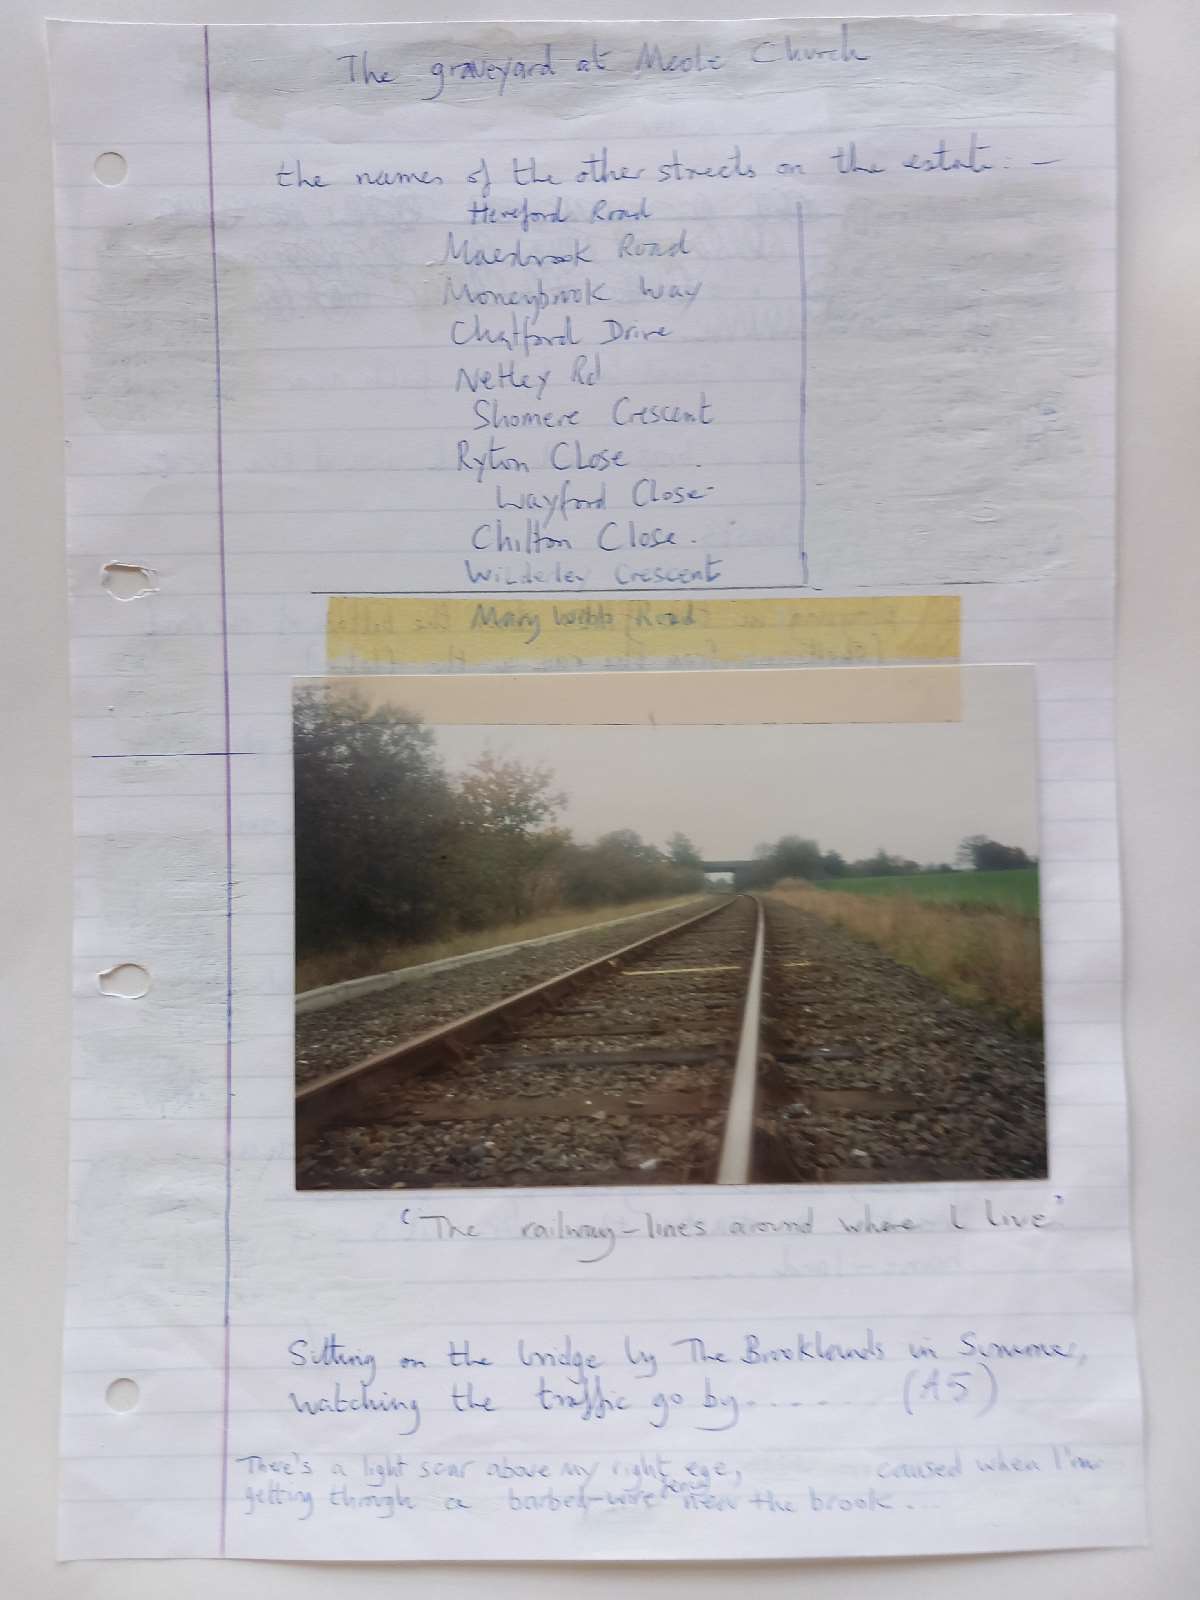 The graveyard at Meole Church
the names of the other streets on the estate: —
Hereford Road
Maesbrook Road
Moneybrook Way
Chatford Drive
Netley Rd
Shomere Crescent
Ryton Close
Wayford Close
Chilton Close.
Wilderley Crescent
Mary Webb Road
'The railway-lines around where I live'
Sitting on the bridge by The Brooklands in Summer,
watching the traffic go by....... (A5)
There's a light scar above my right eye, caused when I'm
getting through a barbed-wire fence near the brook...